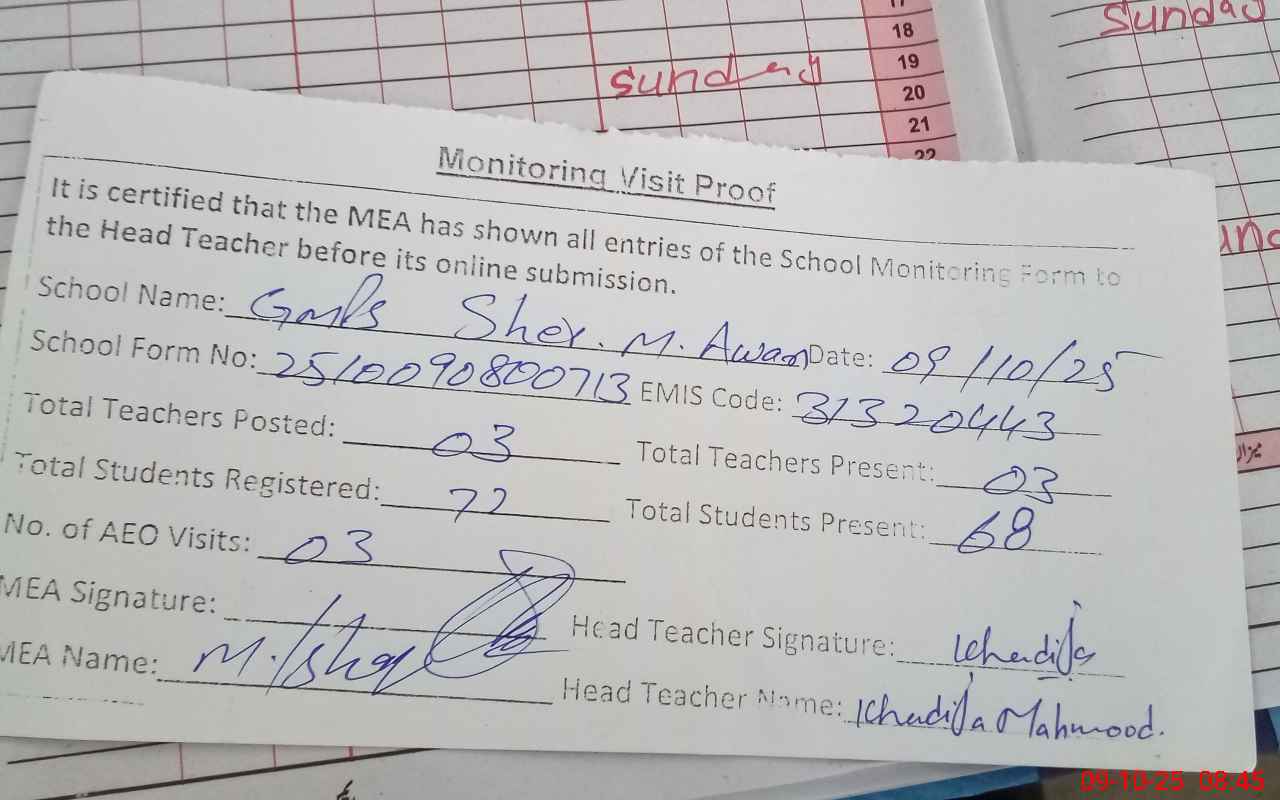 17
18
19
20
21
22
sunday
Sunday
Monitoring Visit Proof
It is certified that the MEA has shown all entries of the School Monitoring Form to
the Head Teacher before its online submission.
School Name: GMPS Sher. M. Awan Date: 09/10/25
School Form No: 2510090800713 EMIS Code: 31320443
Total Teachers Posted: 03 Total Teachers Present: 03
Total Students Registered: 72 Total Students Present: 68
No. of AEO Visits: 03
MEA Signature: Head Teacher Signature: Khadija
MEA Name: M. Ishaq Head Teacher Name: Khadija Mahmood.
09-10-25 08:45